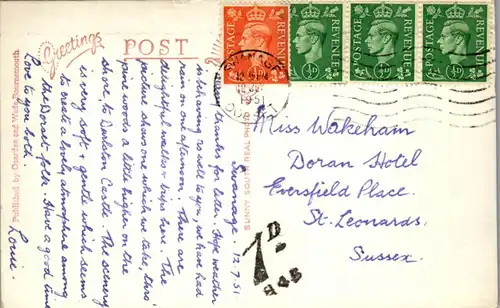 Greetings
POST
POSTAGE REVENUE
½D
POSTAGE REVENUE
½D
POSTAGE REVENUE
½D
POSTAGE REVENUE
SWANAGE
1951
DORSET
Swanage. 12.7.51
Many thanks for letter. Hope weather
is behaving as well to you, we have had
rain on one afternoon. There are
delightful walks & trips here. The
picture shows one which we take, this
pine woods a little higher on the
shore to Durlston Castle. The scenery
is very soft & gentle which seems
to create a lovely atmosphere among
the Dorset folk. Have a good time
Love to you both.
Louie.
Miss Wakeham
Doran Hotel
Eversfield Place.
St. Leonards,
Sussex.
1D
H45
Published by Dearden and Wade, Bournemouth
SUNNY SOUTH REAL PHOTO